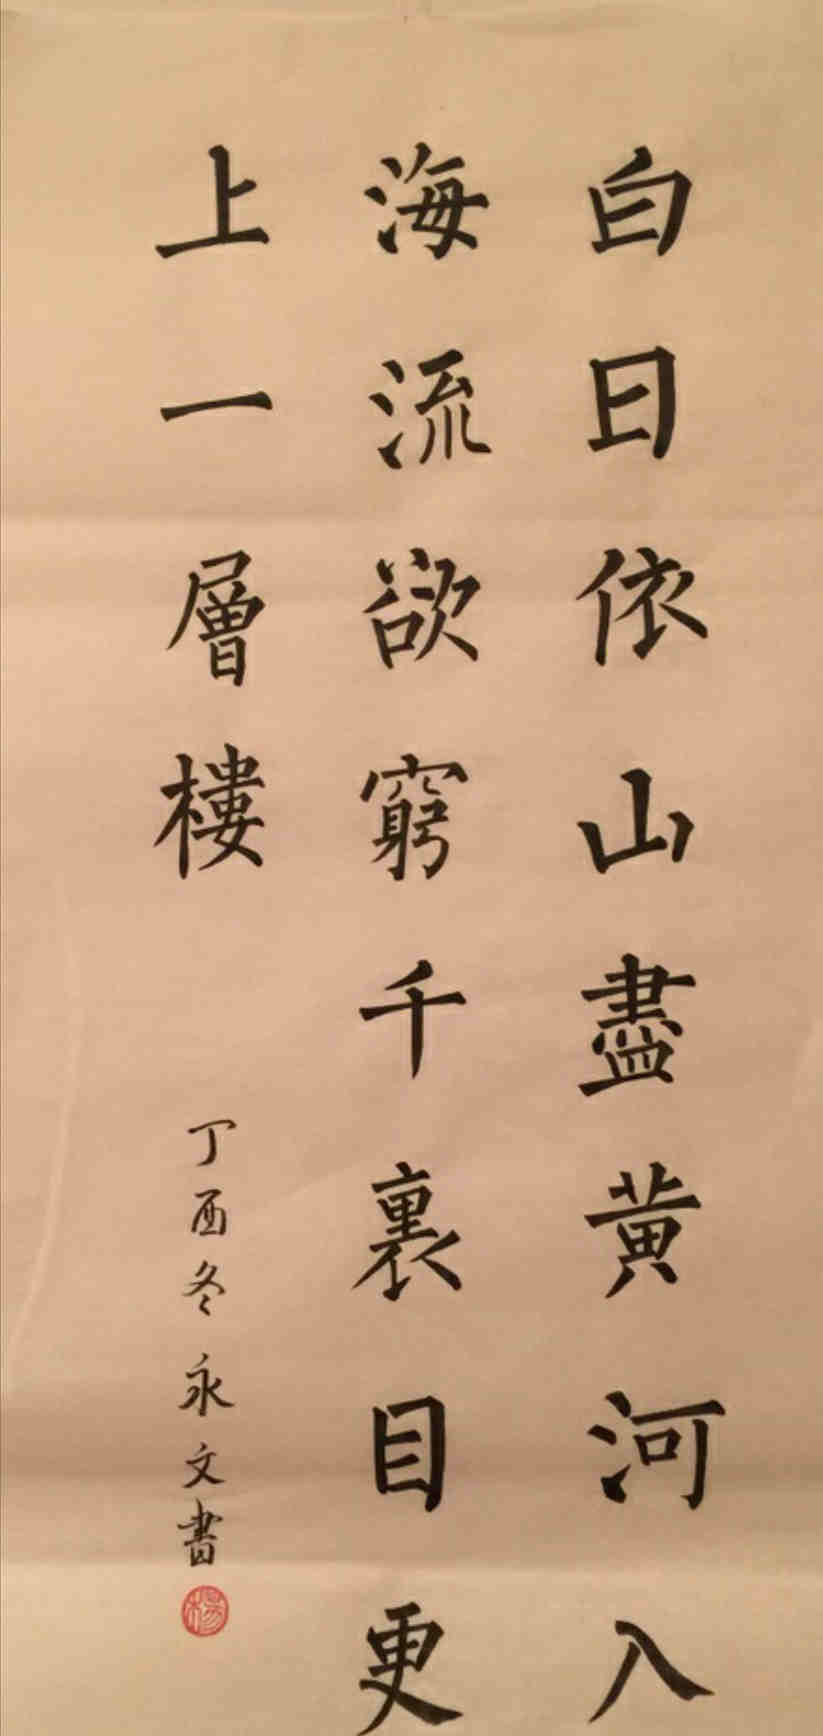 白日依山盡黄河入
海流欲窮千裏目更
上一層樓
丁酉冬永文書
楊